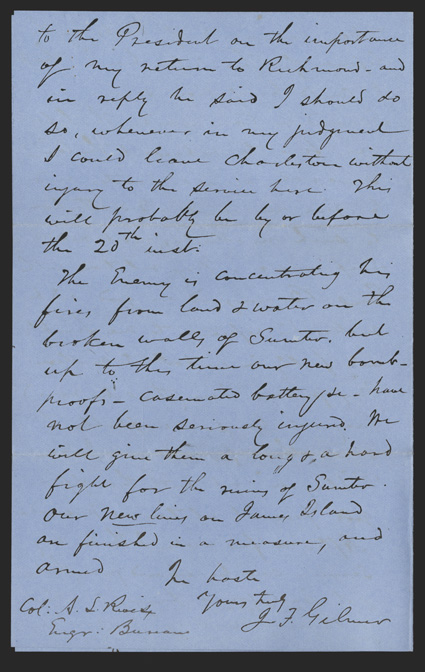 to the President on the importance
of my return to Richmond - and
in reply he said I should do
so, whenever in my judgment
I could leave Charleston without
injury to the service here. This
will probably be by or before
the 20th inst.
The Enemy is concentrating his
fires from land & water on the
broken walls of Sumter, but
up to this time our new bomb-
proofs - casemated battery &c - have
not been seriously injured. We
will give them a long & a hard
fight for the ruins of Sumter.
Our new lines on James Island
are finished in a measure, and
armed
In haste
Yours truly
J. F. Gilmer
Col: A. L. Rives
Engr: Bureau